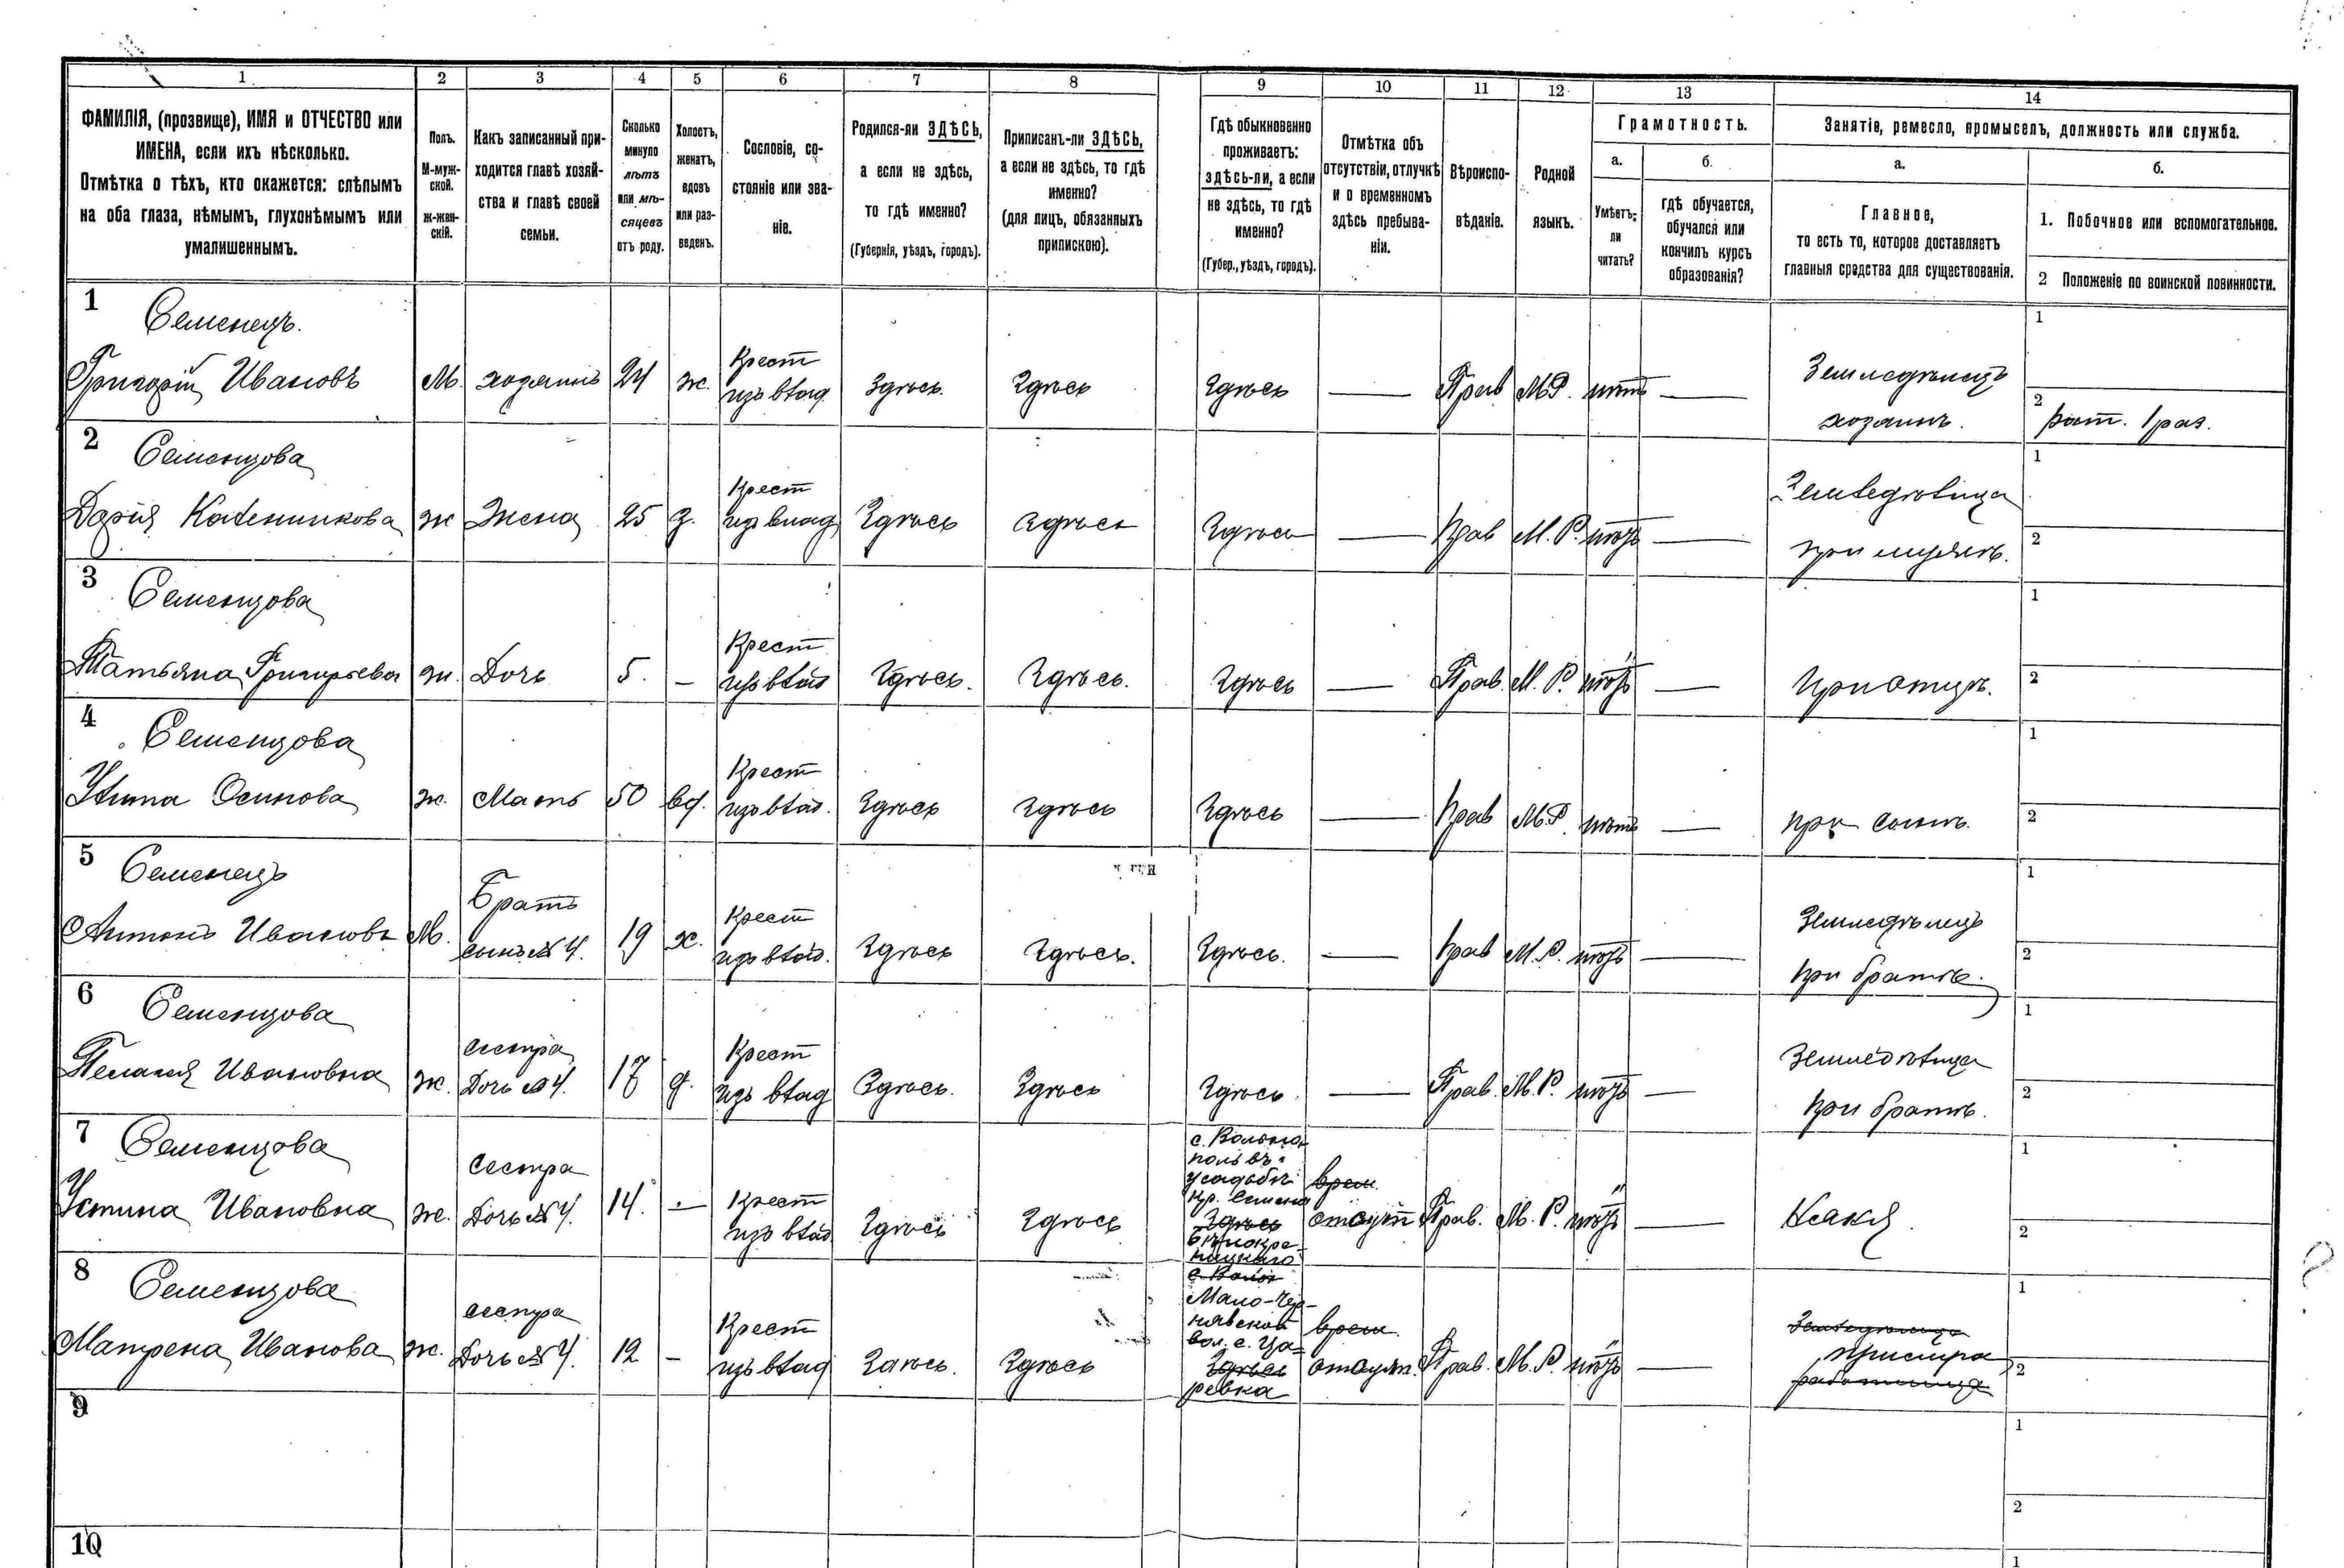 1 2 3 4 5 6 7 8 9 10 11 12 13 14
ФАМИЛІЯ, (прозвище), ИМЯ и ОТЧЕСТВО или
ИМЕНА, если ихъ нѣсколько.
Отмѣтка о тѣхъ, кто окажется: слѣпымъ
на оба глаза, нѣмымъ, глухонѣмымъ или
умалишеннымъ.
Полъ.
М-муж-
ской.
Ж-жен-
скій.
Какъ записанный при-
ходится главѣ хозяй-
ства и главѣ своей
семьи.
Сколько
минуло
лѣтъ
или мѣ-
сяцевъ
отъ роду.
Холостъ,
женатъ,
вдовъ
или раз-
веденъ.
Сословіе, со-
стояніе или зва-
ніе.
Родился-ли ЗДѢСЬ,
а если не здѣсь,
то гдѣ именно?
(Губернія, уѣздъ, городъ).
Приписанъ-ли ЗДѢСЬ,
а если не здѣсь, то гдѣ
именно?
(для лицъ, обязанныхъ
припискою).
Гдѣ обыкновенно
проживаетъ:
здѣсь-ли, а если
не здѣсь, то гдѣ
именно?
(Губер., уѣздъ, городъ).
Отмѣтка объ
отсутствіи, отлучкѣ
и о временномъ
здѣсь пребыва-
ніи.
Вѣроиспо-
вѣданіе.
Родной
языкъ.
Грамотность.
а.
Умѣетъ-
ли
читать?
б.
гдѣ обучается,
обучался или
кончилъ курсъ
образованія?
Занятіе, ремесло, промыселъ, должность или служба.
а.
Главное,
то есть то, которое доставляетъ
главныя средства для существованія.
б.
1. Побочное или вспомогательное.
2 Положеніе по воинской повинности.
1 Семенецъ.
Григорій Ивановъ М. хозяинъ 24 ж. Крест
изъ влад Здѣсь. Здѣсь Здѣсь — Прав М.Р. нѣтъ — Земледѣлецъ
хозяинъ.
1
2 Рат. 1 раз.
2 Семенцова
Дарія Каленикова ж Жена 25 з. Крест
изъ влад Здѣсь Здѣсь Здѣсь — Прав М. Р. нѣтъ — Земледѣлица
при мужѣ.
1
2
3 Семенцова
Татьяна Григорьева ж. Дочь 5. — Крест
изъ влад Здѣсь. Здѣсь. Здѣсь — Прав. М. Р. нѣтъ — при отцѣ.
1
2
4 Семенцова
Улита Осипова ж. Мать 50 вд. Крест
изъ влад. Здѣсь Здѣсь Здѣсь — Прав М.Р. нѣтъ — при сынѣ.
1
2
5 Семенецъ
Антонъ Ивановъ М. Братъ
сынъ №4. 19 х. Крест
изъ влад. Здѣсь Здѣсь. Здѣсь. — Прав М. Р. нѣтъ — Земледѣлецъ
при братѣ.
1
2
6 Семенцова
Пелагея Ивановна ж. сестра
Дочь №4. 17 д. Крест
изъ влад Здѣсь. Здѣсь Здѣсь. — Прав. М. Р. нѣтъ — Земледѣлица
при братѣ.
1
2
7 Семенцова
Устина Ивановна ж. Сестра
Дочь №4. 14. — Крест
изъ влад Здѣсь Здѣсь
усадьбѣ
кр. Семена
Здѣсь
врем.
отсут Прав. М. Р. нѣтъ —
1
2
8 Семенцова
Матрена Иванова ж. сестра
Дочь №4. 12 — Крест
изъ влад Здѣсь. Здѣсь
Мало-Чер-
нявской
вол. с. Ца-
Здѣсь
ревка
врем.
отсут. Прав. М. Р. нѣтъ — Земледѣлица
работница
1
2
9
1
2
10
1